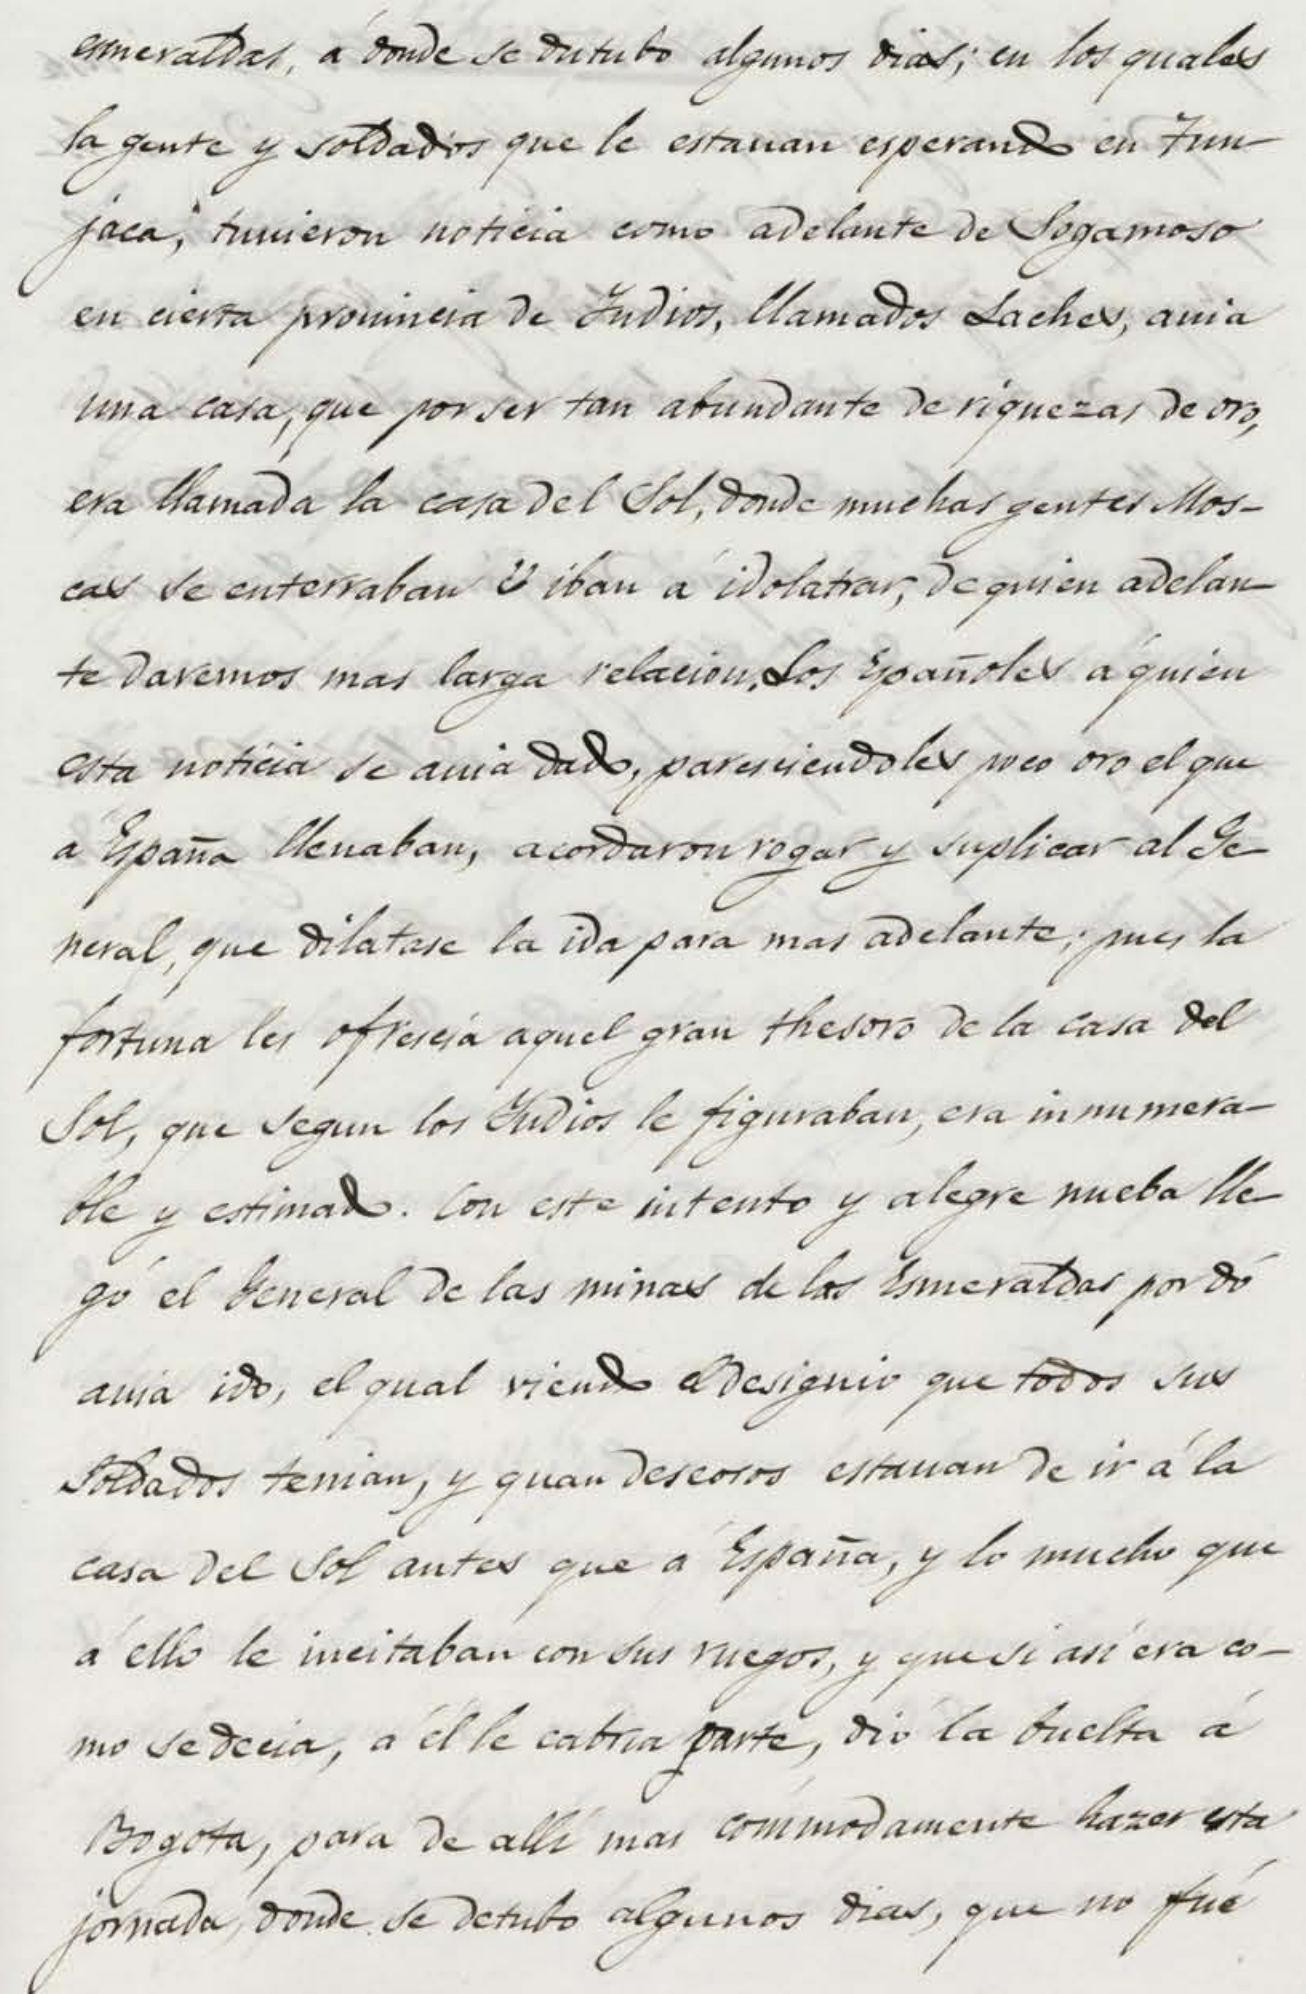 esmeraldas, á donde se detubo algunos dias; en los quales
la gente y soldados que le estauan esperando en Tun-
jaca, tuuieron noticia como adelante de Sogamoso
en cierta prouincia de Indios, llamados Laches, auia
una casa, que por ser tan abundante de riquezas de oro,
era llamada la casa del Sol, donde muchas gentes Mos-
cas se enterraban ú iban á idolatrar, de quien adelan-
te daremos mas larga relacion. Los Españoles á quien
esta noticia se auia dado, paresciendoles poco oro el que
a España lleuaban, acordaron rogar y suplicar al Ge-
neral, que dilatase la ida para mas adelante; pues la
fortuna les ofrescia aquel gran thesoro de la casa del
Sol, que segun los Indios le figuraban, era innumera-
ble y estimado. Con este intento y alegre nueba lle-
gó el General de las minas de las Esmeraldas por dó
auia ido, el qual viendo el designio que todos sus
Soldados tenian, y quan deseosos estauan de ir á la
casa del Sol antes que á España, y lo mucho que
á ello le incitaban con sus ruegos, y que si asi era co-
mo se decia, á él le cabria parte, dió la buelta á
Bogota, para de allí mas cómmodamente hazer esta
jornada, donde se detubo algunos dias, que no fué